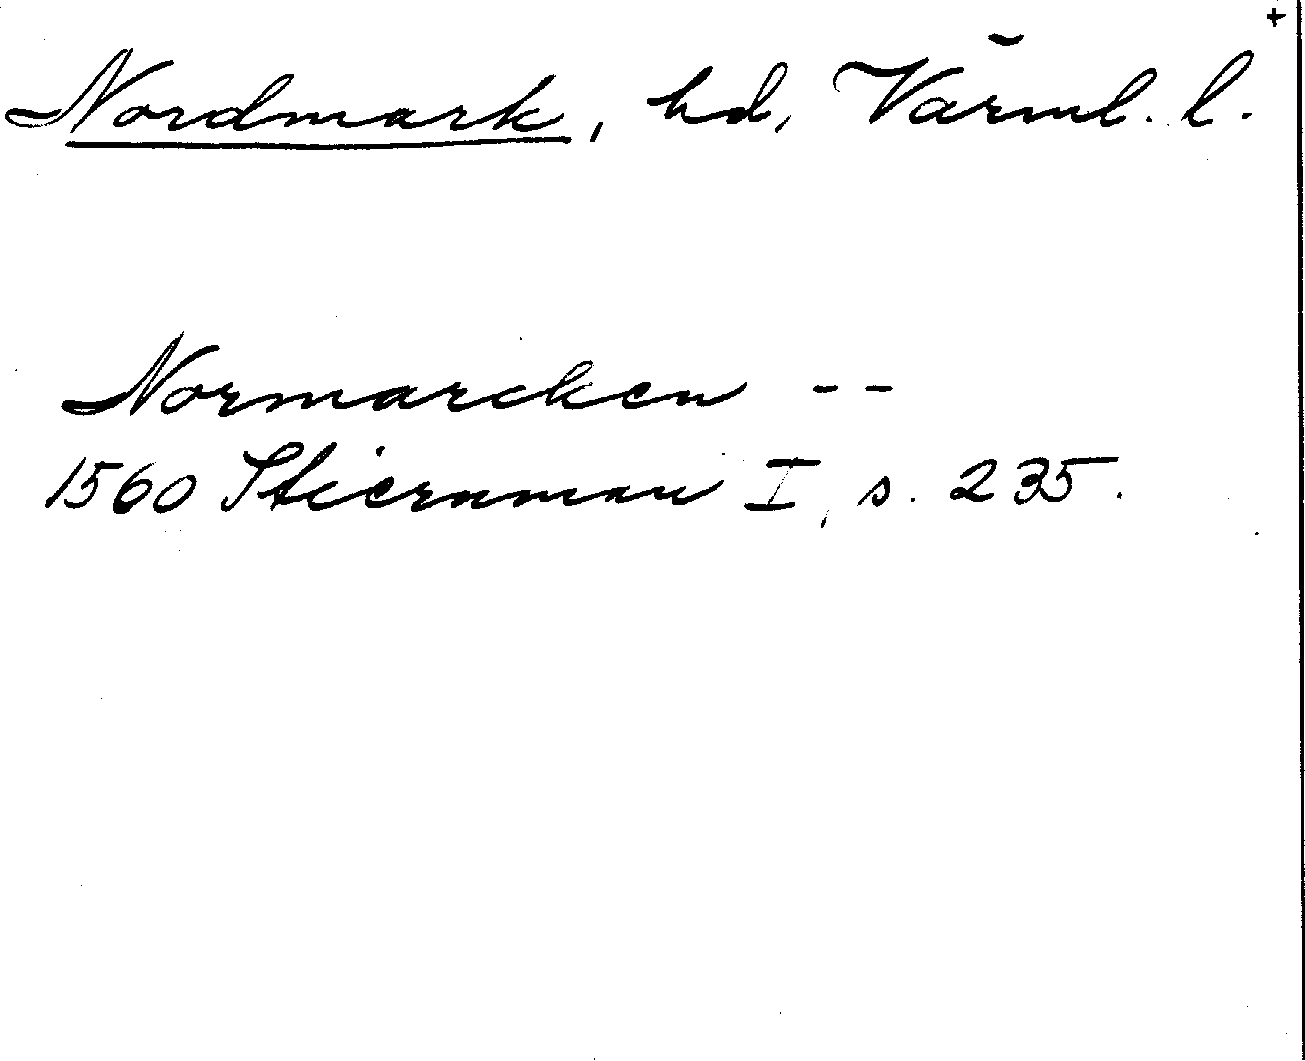 +
Nordmark, hd, Värml. l.
Normarcken --
1560 Stiernman I, s. 235.